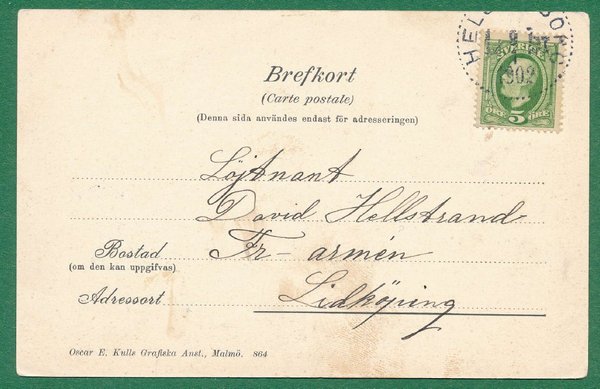 HELS
SVERIGE
902
ÖRE 5 ÖRE
Brefkort
(Carte postale)
(Denna sida användes endast för adresseringen)
Löjtnant
David Hellstrand
Bostad Fr-armén
(om den kan uppgifvas)
Adressort Lidköping
Oscar E. Kulls Grafiska Anst., Malmö. 864